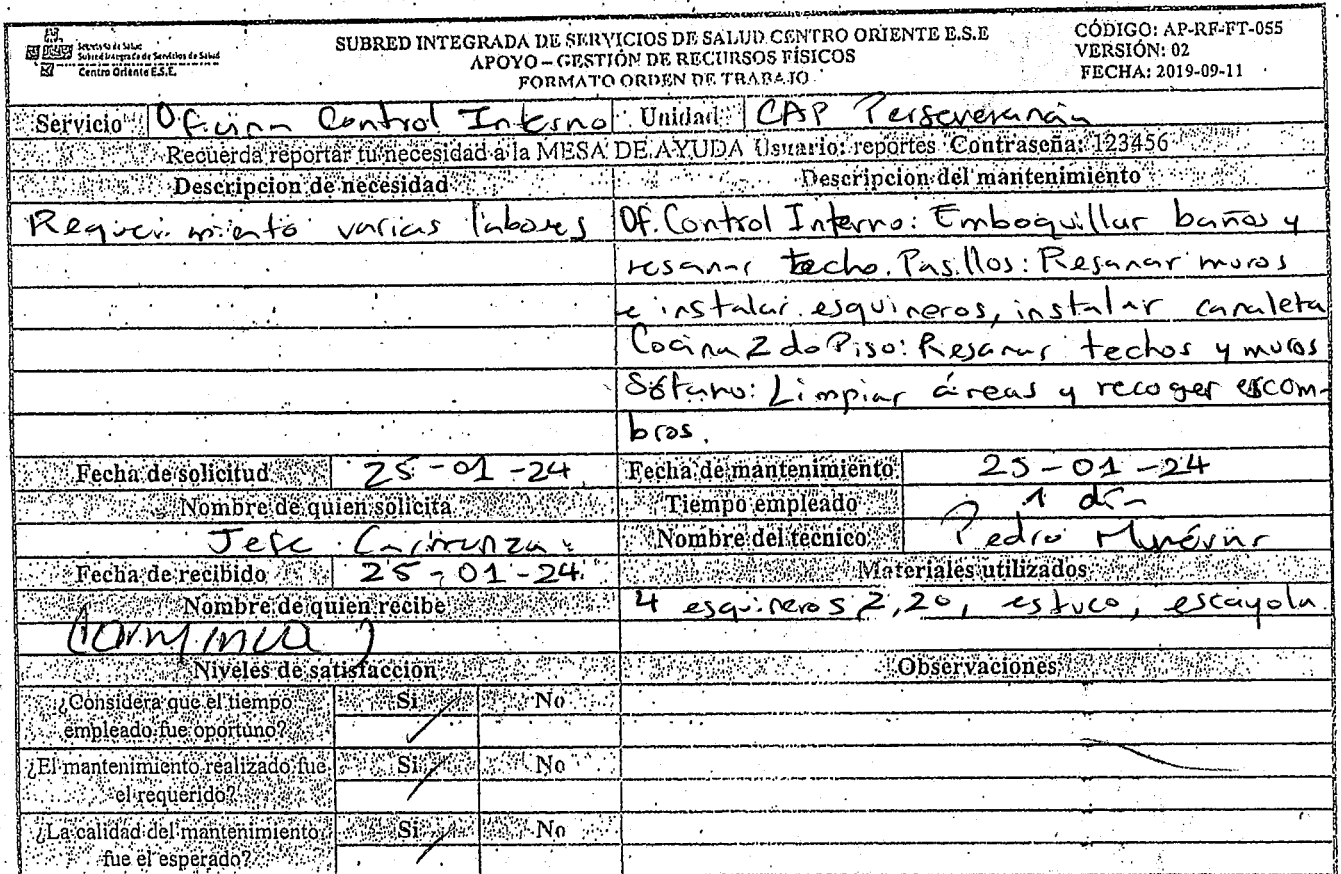 Secretaría de Salud
Subred Integrada de Servicios de Salud
Centro Oriente E.S.E.
SUBRED INTEGRADA DE SERVICIOS DE SALUD CENTRO ORIENTE E.S.E
APOYO – GESTIÓN DE RECURSOS FÍSICOS
FORMATO ORDEN DE TRABAJO
CÓDIGO: AP-RF-FT-055
VERSIÓN: 02
FECHA: 2019-09-11
Servicio Oficina Control Interno Unidad CAP Perseverancia
Recuerda reportar tu necesidad a la MESA DE AYUDA Usuario: reportes Contraseña: 123456
Descripcion de necesidad Descripcion del mantenimiento
Requerimiento varias labores Of. Control Interno: Emboquillar baños y
resanar techo. Pasillos: Resanar muros
e instalar esquineros, instalar canaleta
Cocina 2do Piso: Resanar techos y muros
Sótano: Limpiar áreas y recoger escom-
bros.
Fecha de solicitud 25-01-24 Fecha de mantenimiento 25-01-24
Nombre de quien solicita Tiempo empleado 1 día
Jefe Carranza Nombre del tecnico Pedro Munévar
Fecha de recibido 25-01-24 Materiales utilizados
Nombre de quien recibe 4 esquineros 2,20, estuco, escayola
Niveles de satisfacción Observaciones
¿Considera que el tiempo Si No
empleado fue oportuno?
¿El mantenimiento realizado fue Si No
el requerido?
¿La calidad del mantenimiento Si No
fue el esperado?